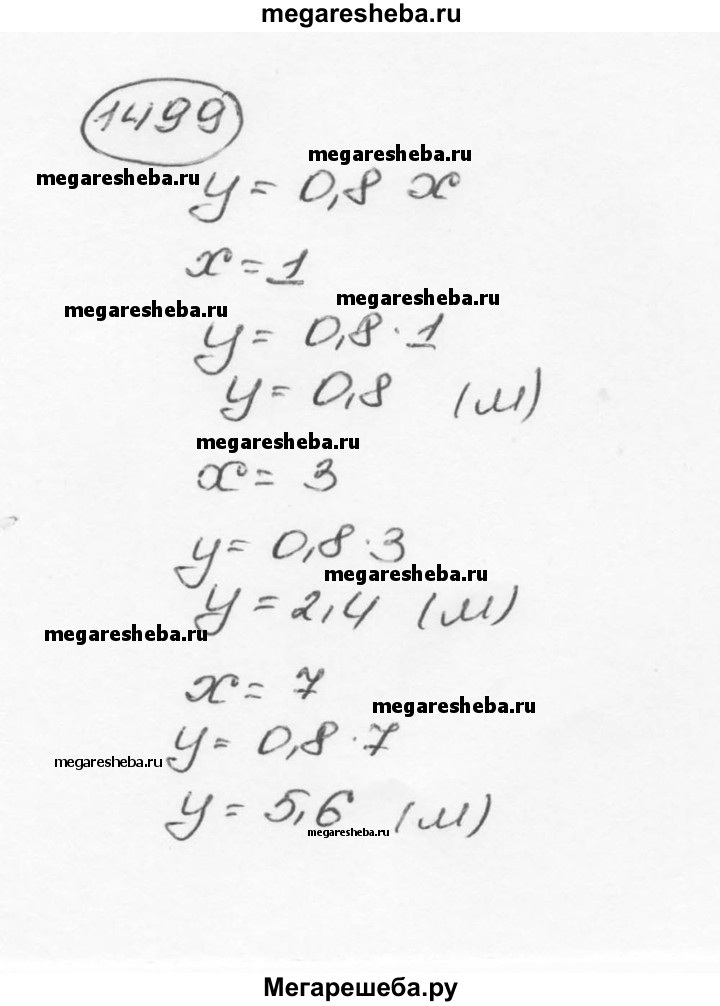 megaresheba.ru
1499
megaresheba.ru
megaresheba.ru
y = 0,8 x
x = 1
megaresheba.ru
megaresheba.ru
y = 0,8 · 1
y = 0,8 (м)
megaresheba.ru
x = 3
y = 0,8 · 3
megaresheba.ru
y = 2,4 (м)
megaresheba.ru
x = 7
megaresheba.ru
y = 0,8 · 7
megaresheba.ru
y = 5,6 (м)
megaresheba.ru
Мегарешеба.ру